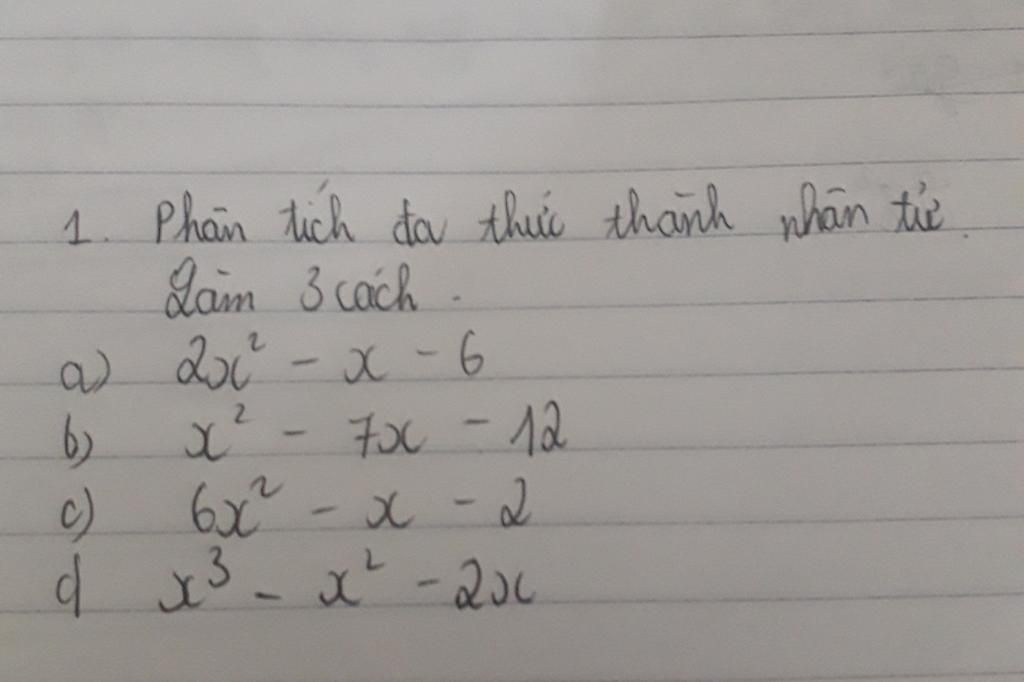 1. Phân tích đa thức thành nhân tử.
Làm 3 cách.
a) 2x² - x - 6
b) x² - 7x - 12
c) 6x² - x - 2
d x³ - x² - 2x